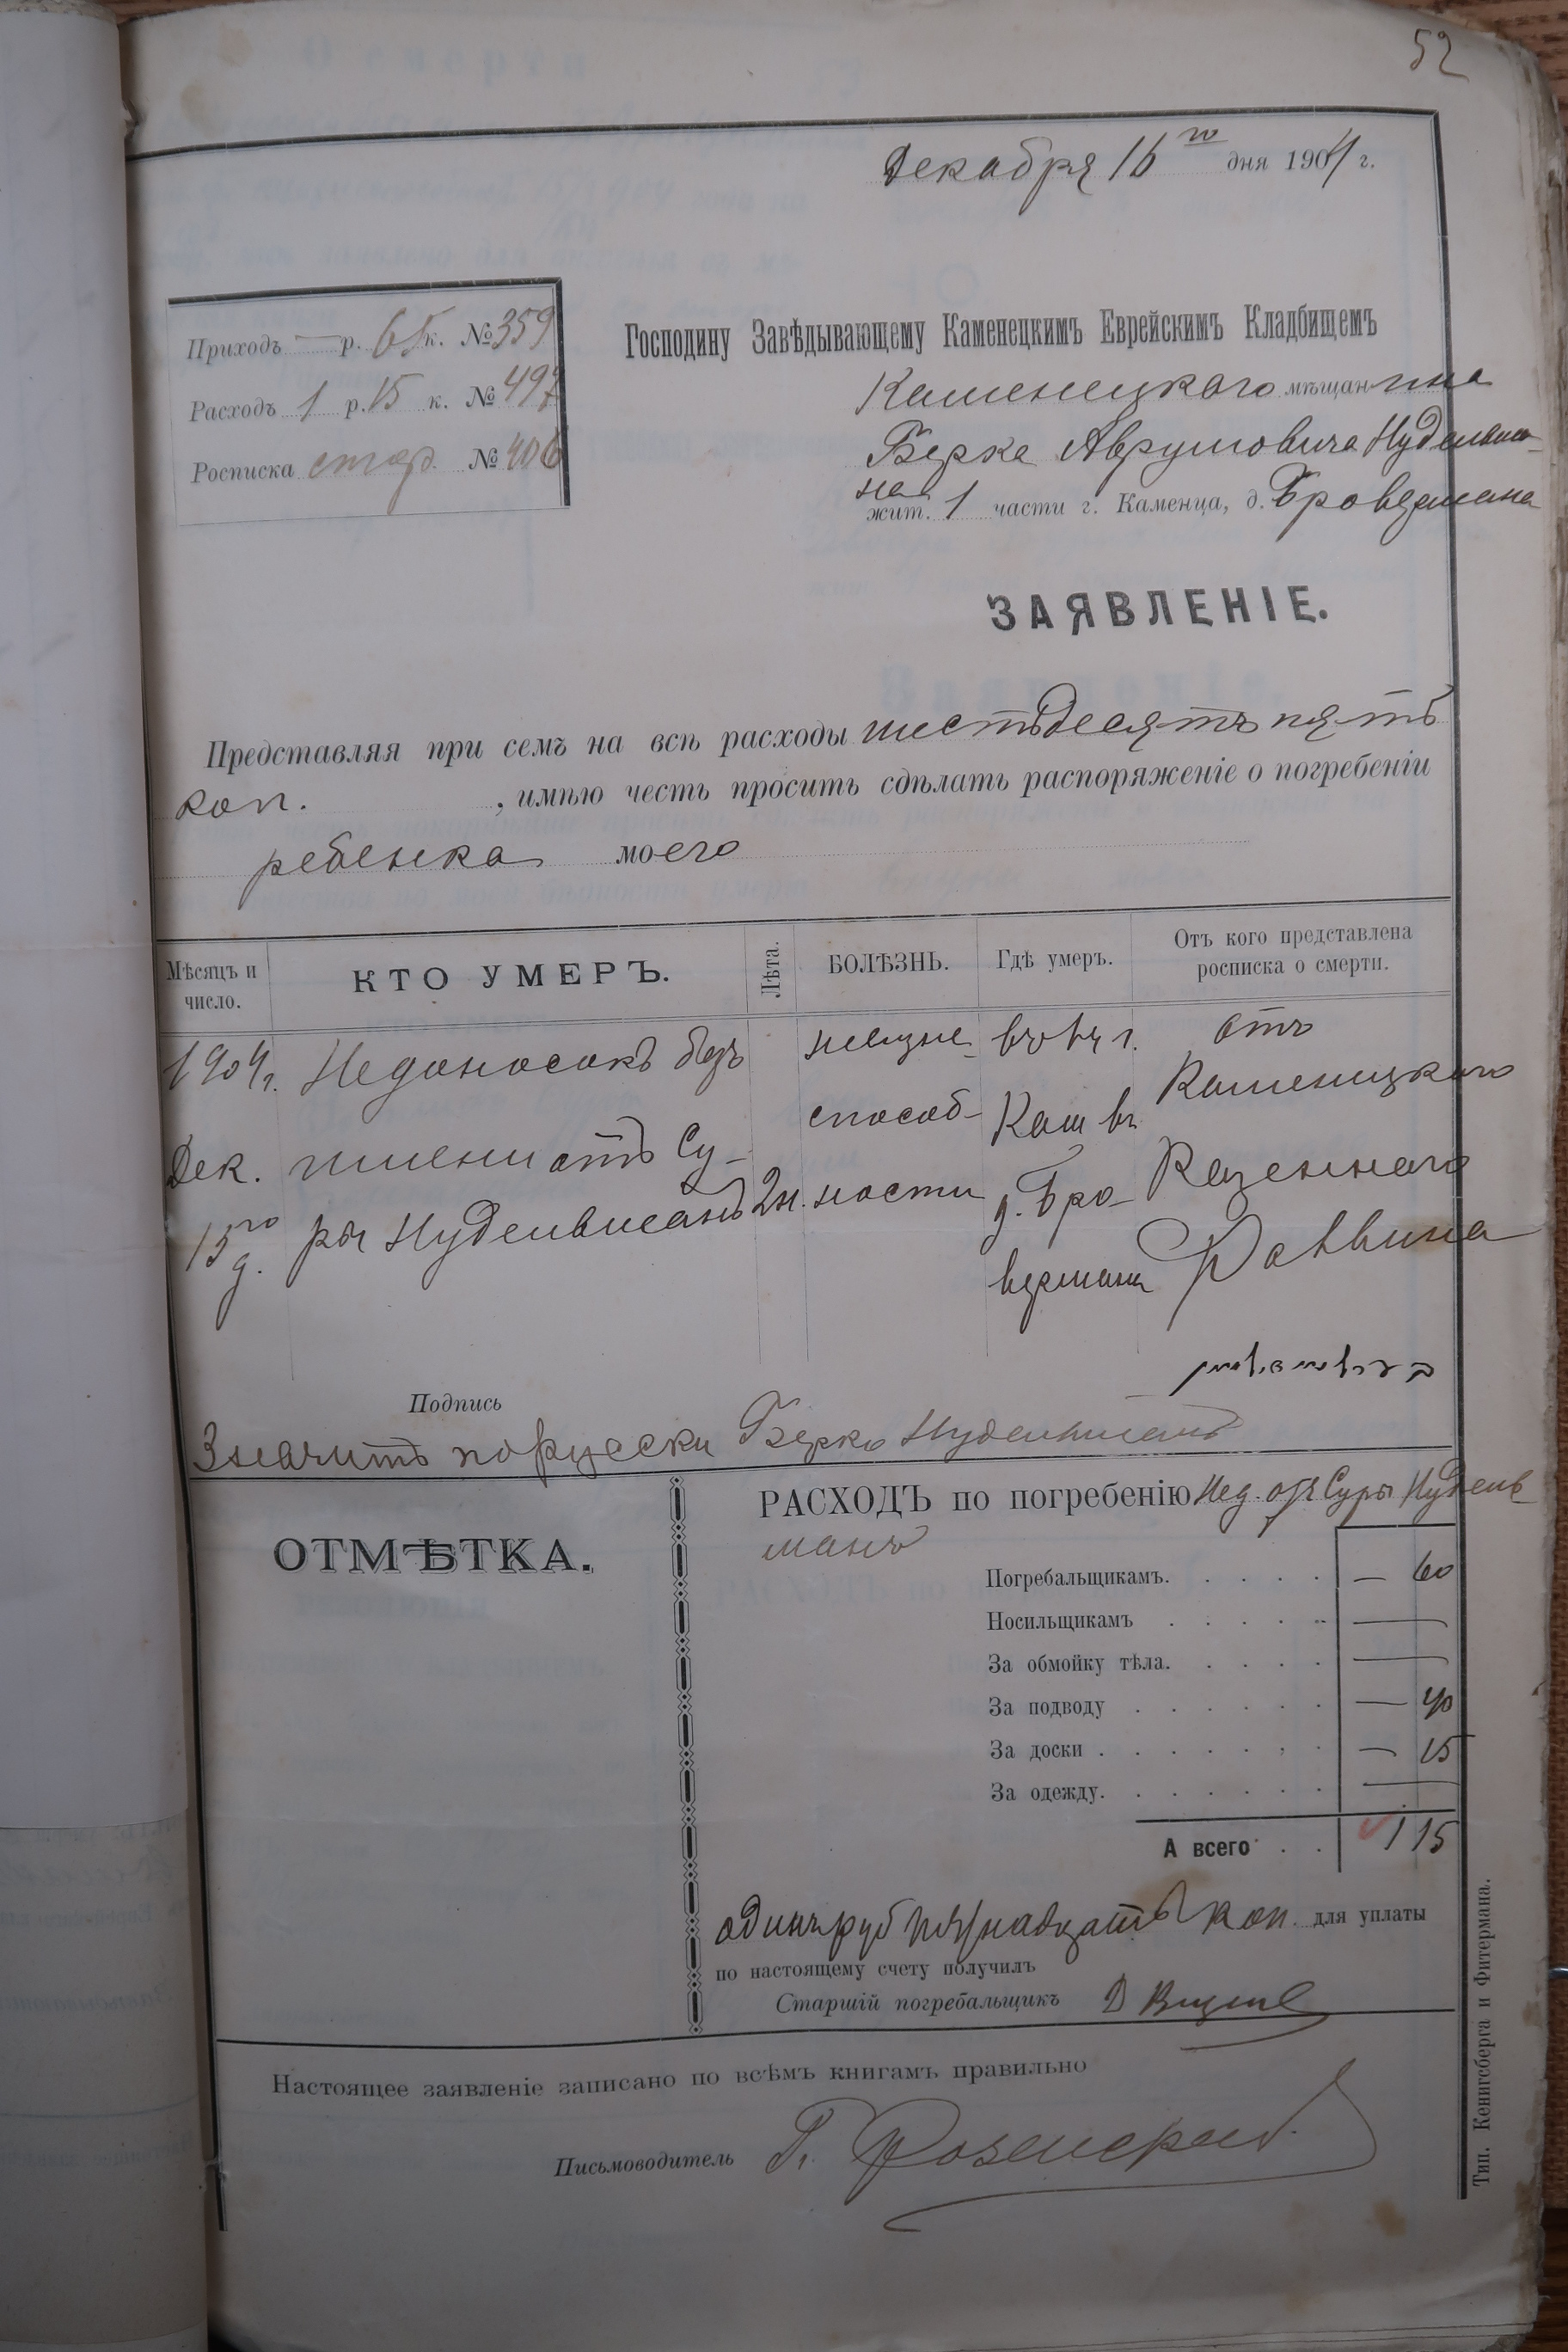 52
Декабря 16го дня 1904 г.
Приходъ — р. 65 к. № 359
Расходъ 1 р. 15 к. № 497
Росписка стар. № 406
Господину Завѣдывающему Каменецкимъ Еврейскимъ Кладбищемъ
Каменецкаго мѣщанина
Берка Аврумовича Нудельма-
на
жит. 1 части г. Каменца, д. Бровермана
ЗАЯВЛЕНІЕ.
Представляя при семъ на всѣ расходы шестьдесятъ пять
коп. , имѣю честь просить сдѣлать распоряженіе о погребеніи
ребенка моего
Мѣсяцъ и число.
КТО УМЕРЪ.
Лѣта.
БОЛѢЗНЬ.
Гдѣ умеръ.
Отъ кого представлена росписка о смерти.
1904г.
Дек.
15го
д.
Недоносокъ безъ
имени отъ Су-
ры Нудельманъ
2н.
неизне
способ-
ности
въ г.
Кам въ
д. Бро-
вермана
отъ
Каменецкаго
Казеннаго
Раввина
Подпись
Значитъ порусски Берко Нудельманъ
ОТМѢТКА.
РАСХОДЪ по погребенію Нед. отъ Суры Нудель
манъ
Погребальщикамъ. — 60
Носильщикамъ —
За обмойку тѣла. —
За подводу — 40
За доски — 15
За одежду. —
А всего 1 15
одинъ руб пятнадцать коп. для уплаты
по настоящему счету получилъ
Старшій погребальщикъ Д
Настоящее заявленіе записано по всѣмъ книгамъ правильно
Письмоводитель Г.
Тип. Кенигсберга и Фитермана.